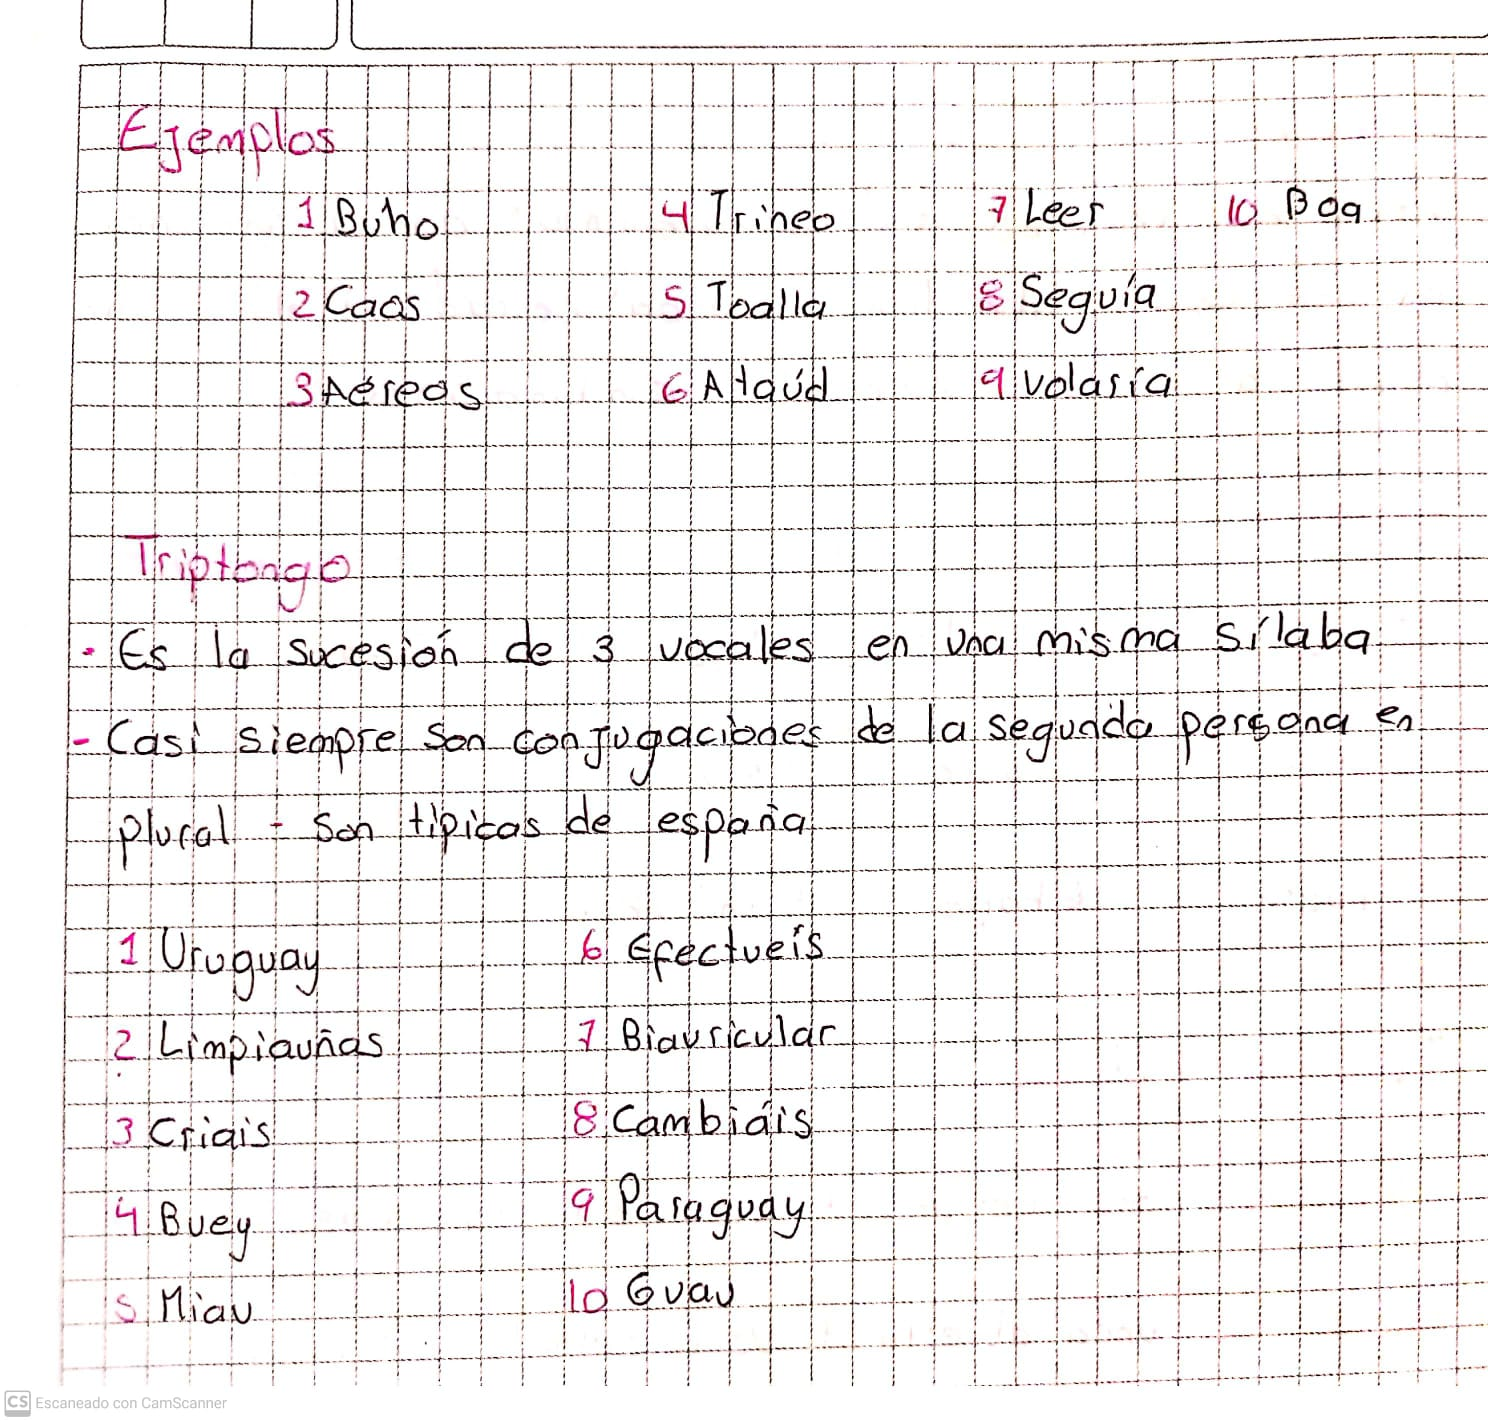 Ejemplos
1 Buho 4 Trineo 7 Leer 10 Boa
2 Caos 5 Toalla 8 Seguía
3 Aéreos 6 Ataúd 9 Volaría
Triptongo
· Es la sucesión de 3 vocales en una misma sílaba
- Casi siempre son conjugaciones de la segunda persona en
plural - Son típicas de españa
1 Uruguay 6 Efectueís
2 Limpiauñas 7 Biauricular
3 Criais 8 Cambiáis
4 Buey 9 Paraguay
5 Miau 10 Guau
CS Escaneado con CamScanner